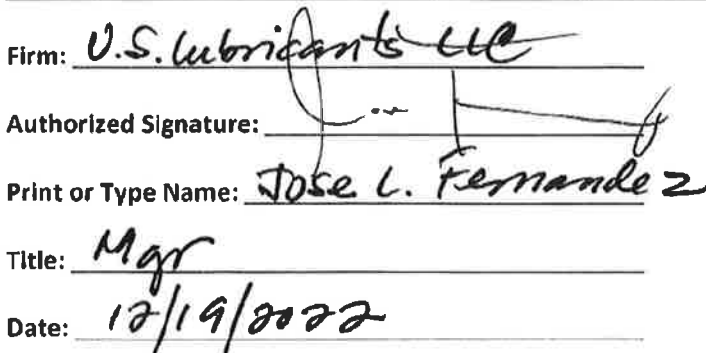 Firm: U.S. Lubricants LLC
Authorized Signature:
Print or Type Name: Jose L. Fernandez
Title: Mgr
Date: 12/19/2022